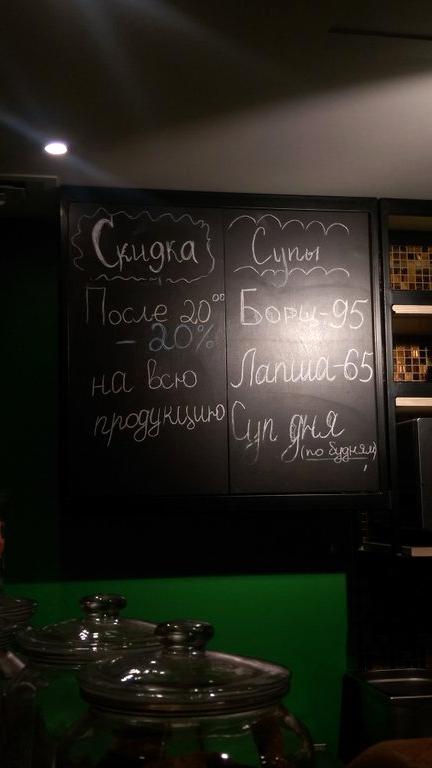 Скидка
После 20⁰⁰
- 20%
на всю
продукцию
Супы
Борщ-95
Лапша-65
Суп дня
(по будням)